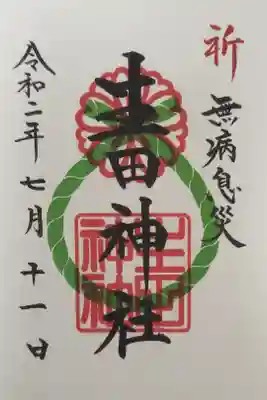 祈
無病息災
生田神社
生田
神社
令和二年七月十一日